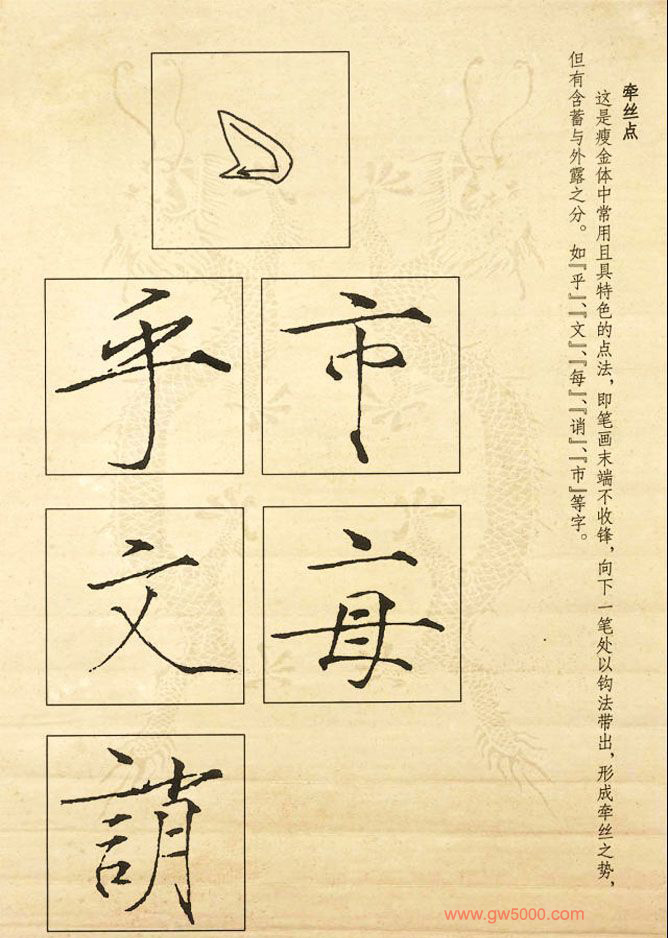 牵丝点
这是瘦金体中常用且具特色的点法，即笔画末端不收锋，向下一笔处以钩法带出，形成牵丝之势，
但有含蓄与外露之分。如『乎』、『文』、『每』、『诮』、『市』等字。
市
乎
每
文
誚
www.gw5000.com